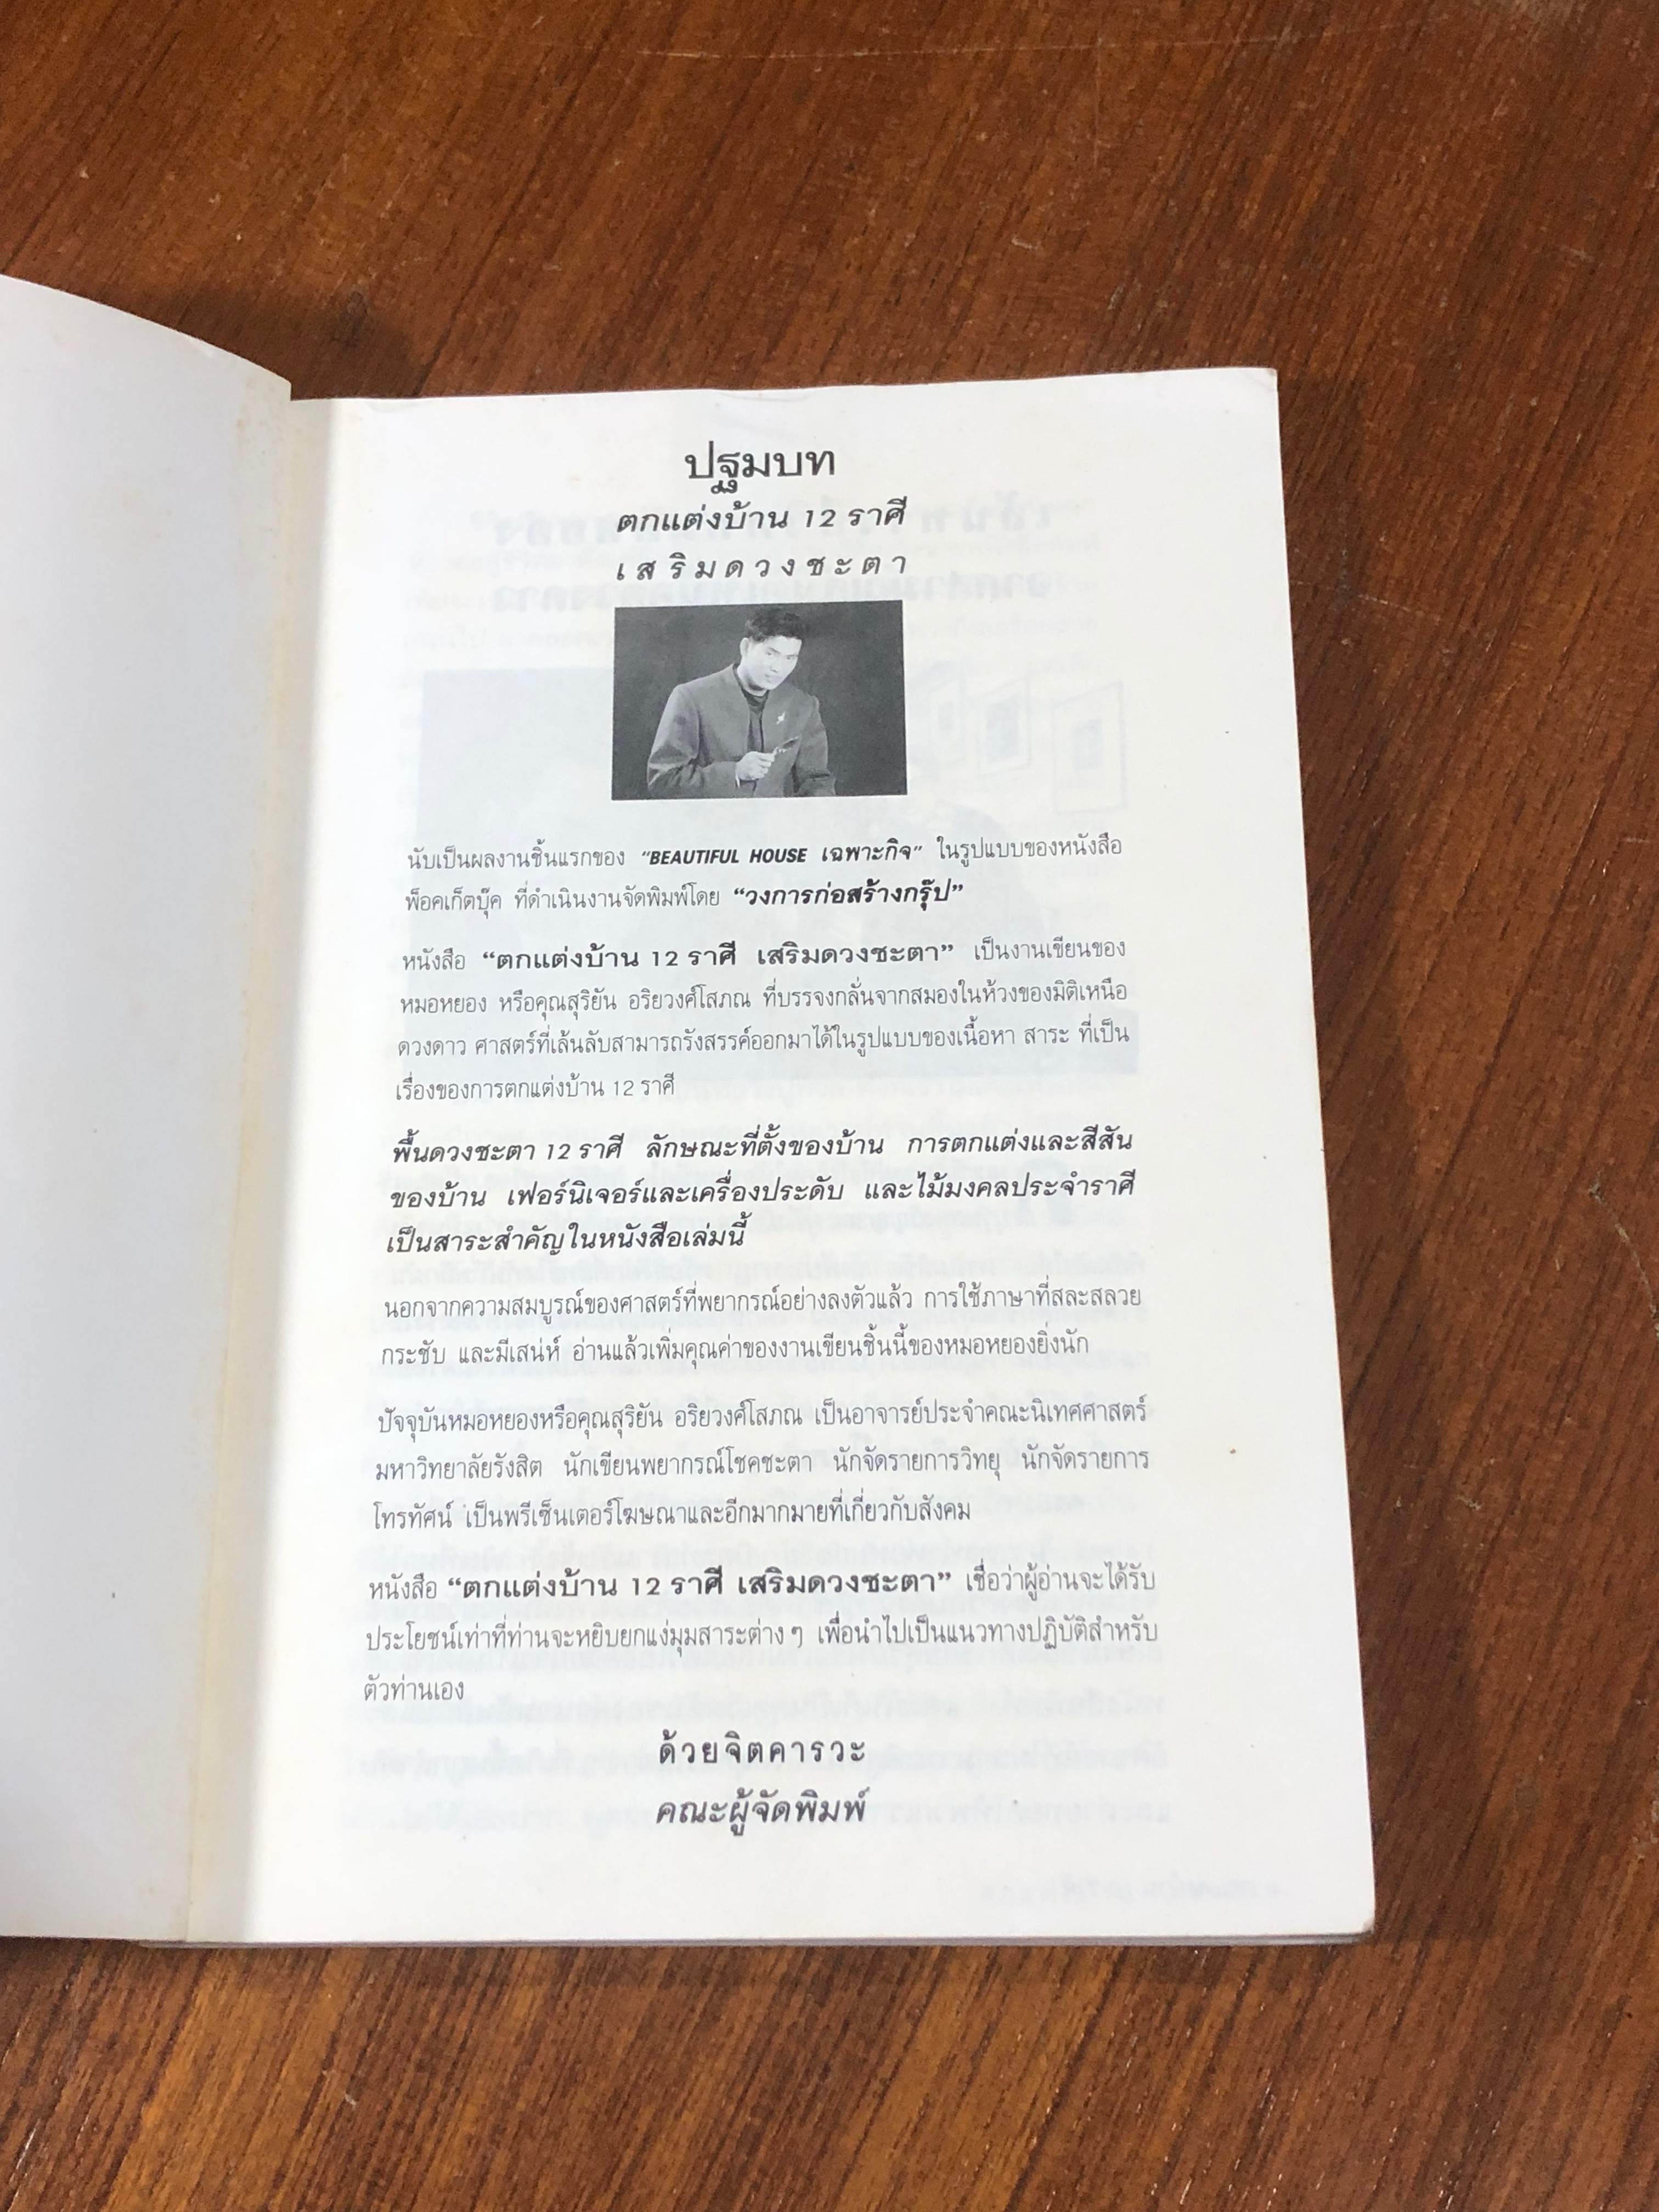 ปฐมบท
ตกแต่งบ้าน 12 ราศี
เสริมดวงชะตา
นับเป็นผลงานชิ้นแรกของ "BEAUTIFUL HOUSE เฉพาะกิจ" ในรูปแบบของหนังสือ
พ็อคเก็ตบุ๊ค ที่ดำเนินงานจัดพิมพ์โดย "วงการก่อสร้างกรุ๊ป"
หนังสือ "ตกแต่งบ้าน 12 ราศี เสริมดวงชะตา" เป็นงานเขียนของ
หมอหยอง หรือคุณสุริยัน อริยวงศ์โสภณ ที่บรรจงกลั่นจากสมองในห้วงของมิติเหนือ
ดวงดาว ศาสตร์ที่เล้นลับสามารถรังสรรค์ออกมาได้ในรูปแบบของเนื้อหา สาระ ที่เป็น
เรื่องของการตกแต่งบ้าน 12 ราศี
พื้นดวงชะตา 12 ราศี ลักษณะที่ตั้งของบ้าน การตกแต่งและสีสัน
ของบ้าน เฟอร์นิเจอร์และเครื่องประดับ และไม้มงคลประจำราศี
เป็นสาระสำคัญในหนังสือเล่มนี้
นอกจากความสมบูรณ์ของศาสตร์ที่พยากรณ์อย่างลงตัวแล้ว การใช้ภาษาที่สละสลวย
กระชับ และมีเสน่ห์ อ่านแล้วเพิ่มคุณค่าของงานเขียนชิ้นนี้ของหมอหยองยิ่งนัก
ปัจจุบันหมอหยองหรือคุณสุริยัน อริยวงศ์โสภณ เป็นอาจารย์ประจำคณะนิเทศศาสตร์
มหาวิทยาลัยรังสิต นักเขียนพยากรณ์โชคชะตา นักจัดรายการวิทยุ นักจัดรายการ
โทรทัศน์ เป็นพรีเซ็นเตอร์โฆษณาและอีกมากมายที่เกี่ยวกับสังคม
หนังสือ "ตกแต่งบ้าน 12 ราศี เสริมดวงชะตา" เชื่อว่าผู้อ่านจะได้รับ
ประโยชน์เท่าที่ท่านจะหยิบยกแง่มุมสาระต่าง ๆ เพื่อนำไปเป็นแนวทางปฏิบัติสำหรับ
ตัวท่านเอง
ด้วยจิตคารวะ
คณะผู้จัดพิมพ์